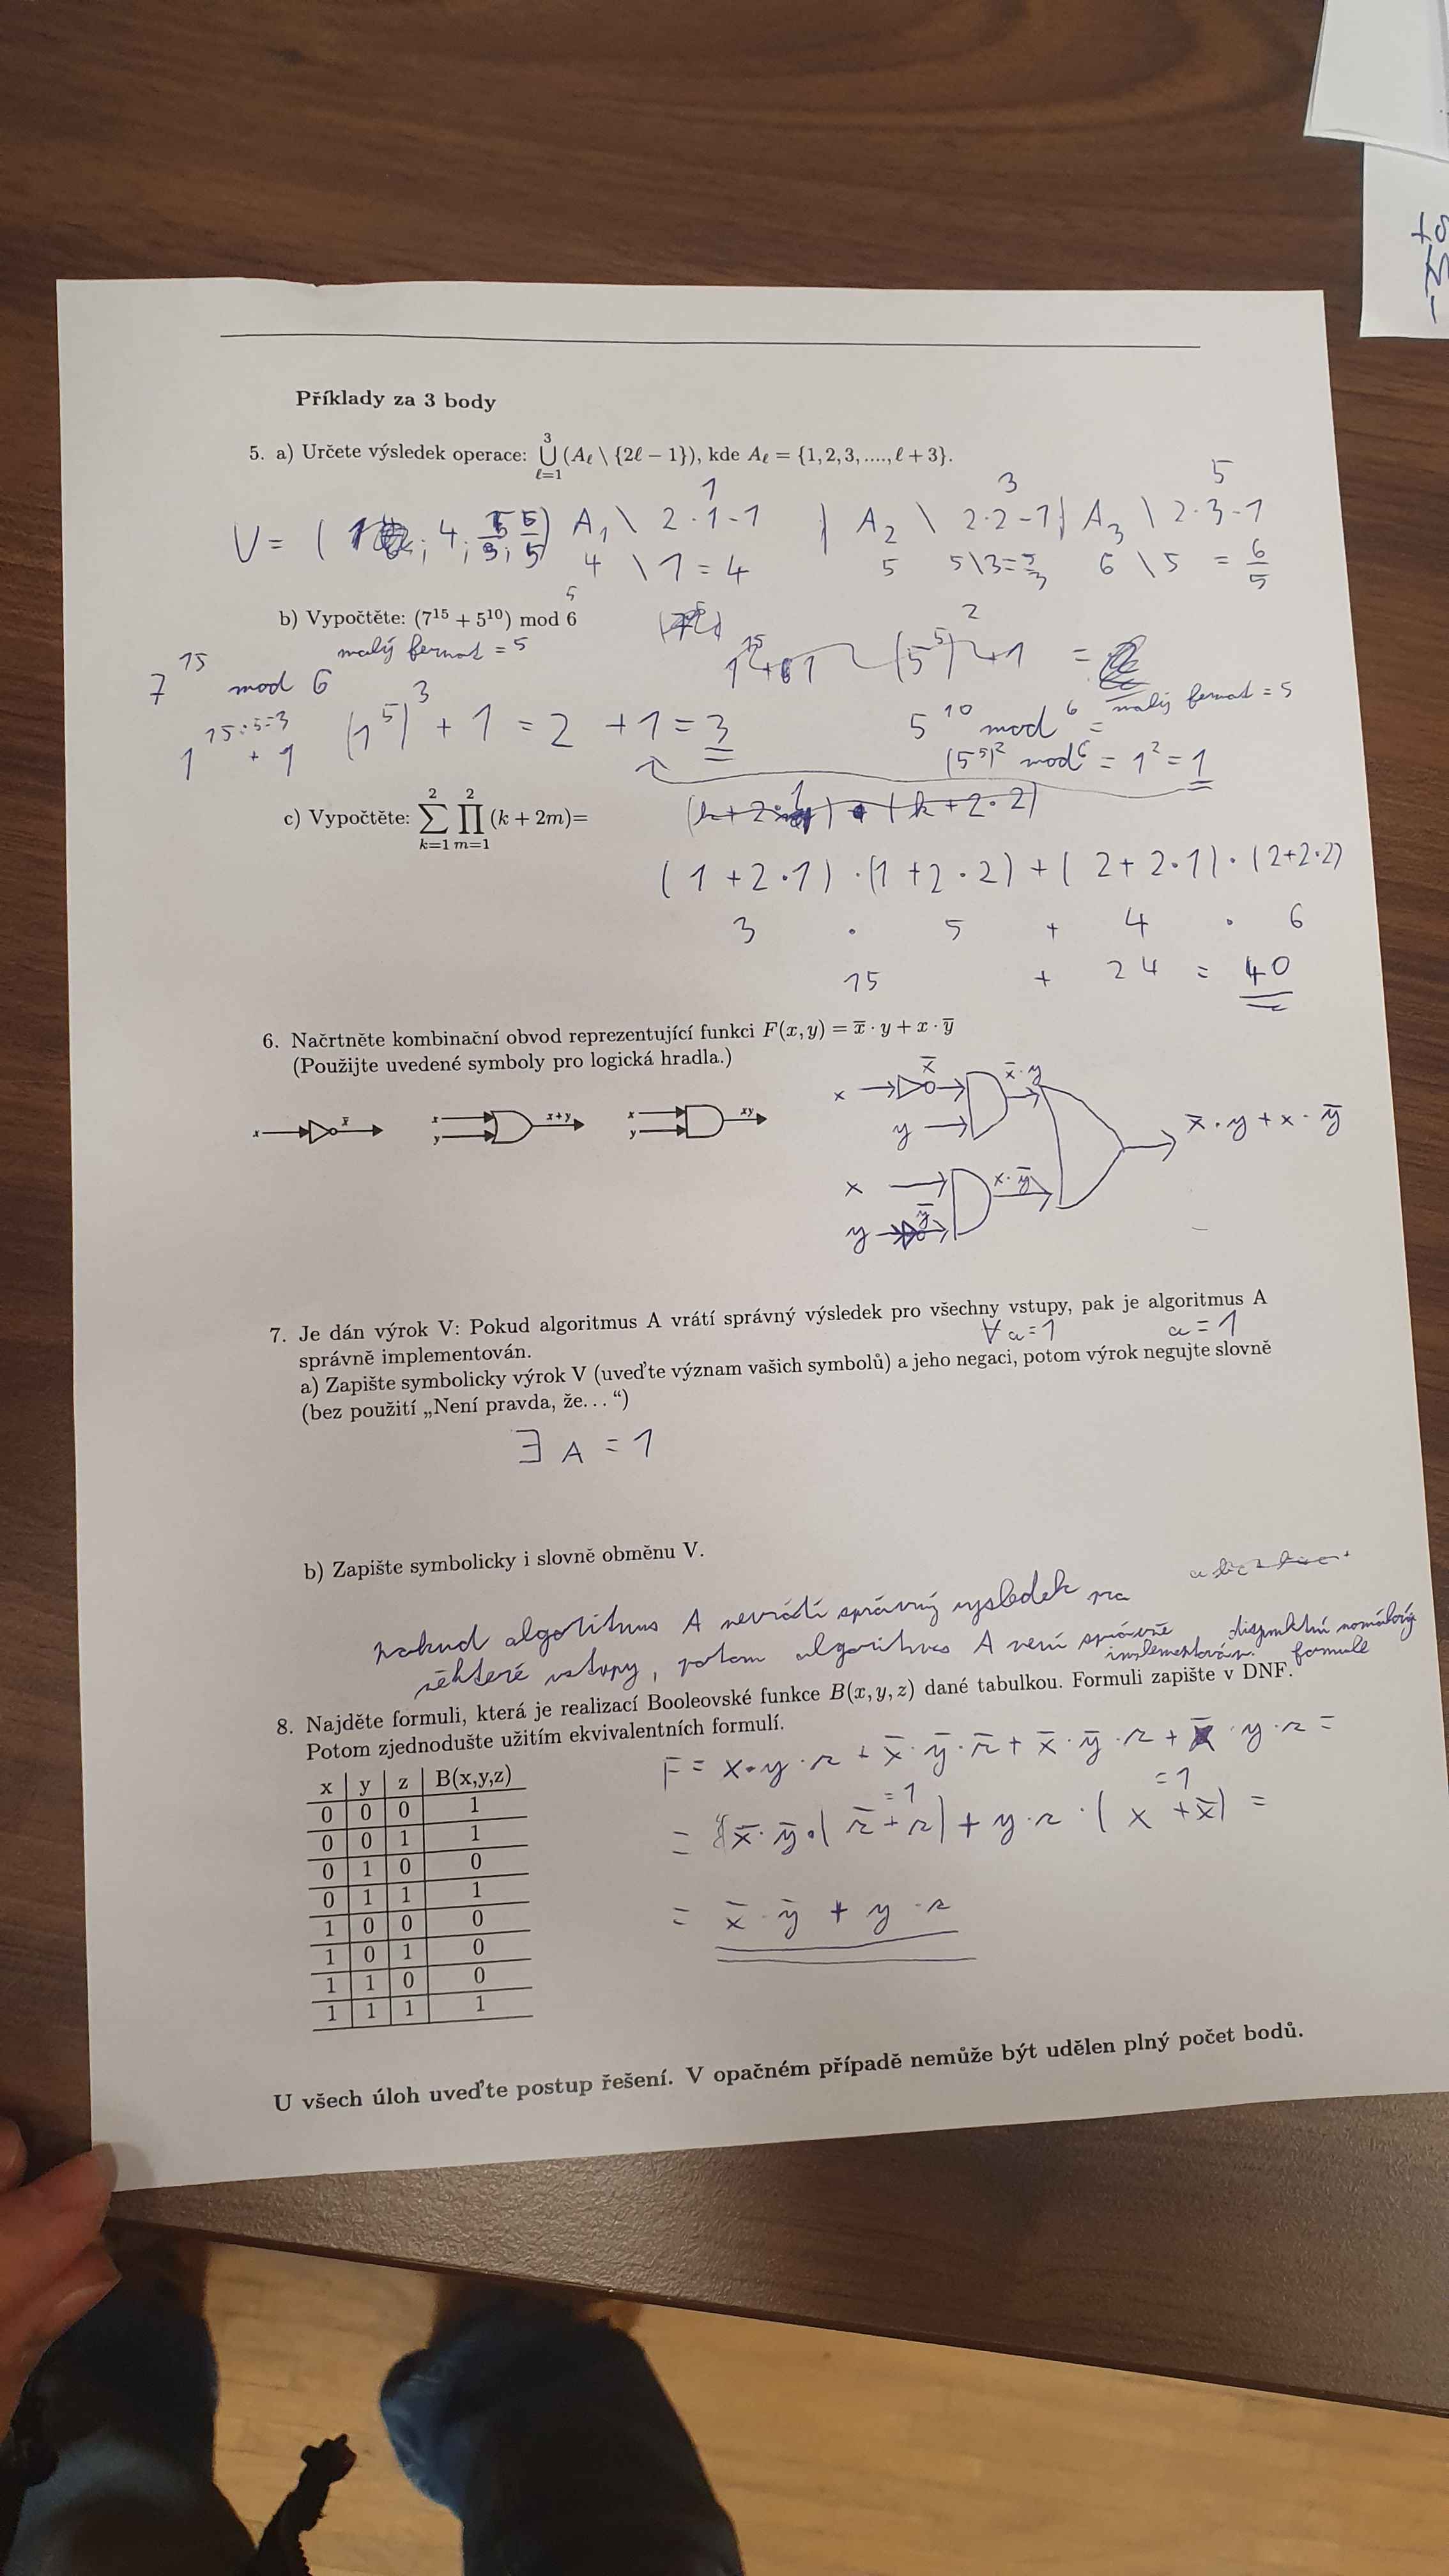 Příklady za 3 body
5. a) Určete výsledek operace: ⋃_{ℓ=1}^{3} (A_ℓ \ {2ℓ − 1}), kde A_ℓ = {1, 2, 3, ...., ℓ + 3}.
1 3 5
V = ( ; 4; 5/3; 6/5) A₁ \ 2·1-1 | A₂ \ 2·2-1 | A₃ \ 2·3-1
4 \ 1 = 4 5 5\3 = 5/3 6 \ 5 = 6/5
5
b) Vypočtěte: (7¹⁵ + 5¹⁰) mod 6
malý fermat = 5
1¹⁵ + 1 (5⁵)² + 1 =
7¹⁵ mod 6
15:5=3
1 + 1
(1⁵)³ + 1 = 2 + 1 = 3
5¹⁰ mod 6 = malý fermat = 5
(5⁵)² mod 6 = 1² = 1
c) Vypočtěte: ∑_{k=1}^{2} ∏_{m=1}^{2} (k + 2m)=
(k+2·1) · (k+2·2)
(1+2·1)·(1+2·2)+(2+2·1)·(2+2·2)
3 · 5 + 4 · 6
15 + 24 = 40
6. Načrtněte kombinační obvod reprezentující funkci F(x, y) = x̅ · y + x · y̅
(Použijte uvedené symboly pro logická hradla.)
x x̅ x y x+y x y xy
x x̅ x̅·y
y
x̅·y + x·y̅
x x·y̅
y y̅
7. Je dán výrok V: Pokud algoritmus A vrátí správný výsledek pro všechny vstupy, pak je algoritmus A
správně implementován.
∀a=1 a=1
a) Zapište symbolicky výrok V (uveďte význam vašich symbolů) a jeho negaci, potom výrok negujte slovně
(bez použití „Není pravda, že. . . “)
∃ A = 1
b) Zapište symbolicky i slovně obměnu V.
pokud algoritmus A nevrátí správný výsledek pro
některé vstupy, potom algoritmus A není správně
implementován.
disjunktní normálový
formule
8. Najděte formuli, která je realizací Booleovské funkce B(x, y, z) dané tabulkou. Formuli zapište v DNF.
Potom zjednodušte užitím ekvivalentních formulí.
F = x·y·z + x̅·y̅·z̅ + x̅·y̅·z + x̅·y·z =
=1 =1
= x̅·y̅·(z̅+z) + y·z·(x+x̅) =
= x̅·y̅ + y·z
x y z B(x,y,z)
0 0 0 1
0 0 1 1
0 1 0 0
0 1 1 1
1 0 0 0
1 0 1 0
1 1 0 0
1 1 1 1
U všech úloh uveďte postup řešení. V opačném případě nemůže být udělen plný počet bodů.